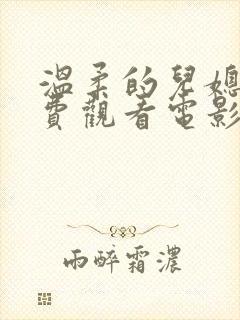 溫柔的兒媳
費觀看電影
雨醉霜濃